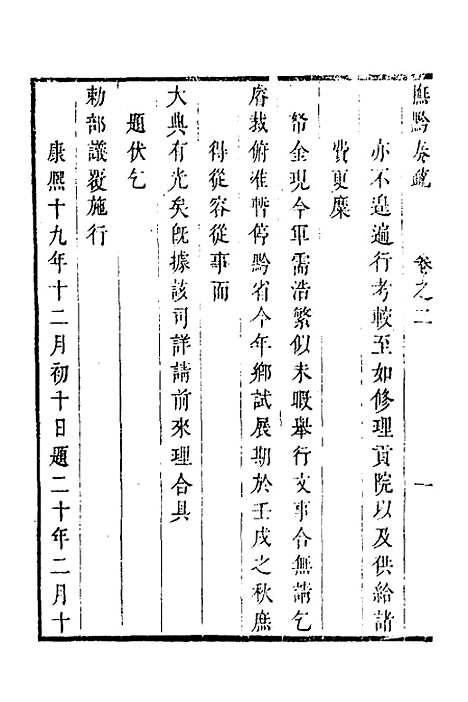 撫黔奏疏 卷之二 一
亦不遑遍行考較至如修理貢院以及供給諸
費更糜
帑金現今軍需浩繁似未暇舉行文事合無請乞
睿裁俯准暫停黔省今年鄉試展期於壬戌之秋庶
得從容從事而
大典有光矣旣據該司詳請前來理合具
題伏乞
勅部議覆施行
康熙十九年十二月初十日題二十年二月十